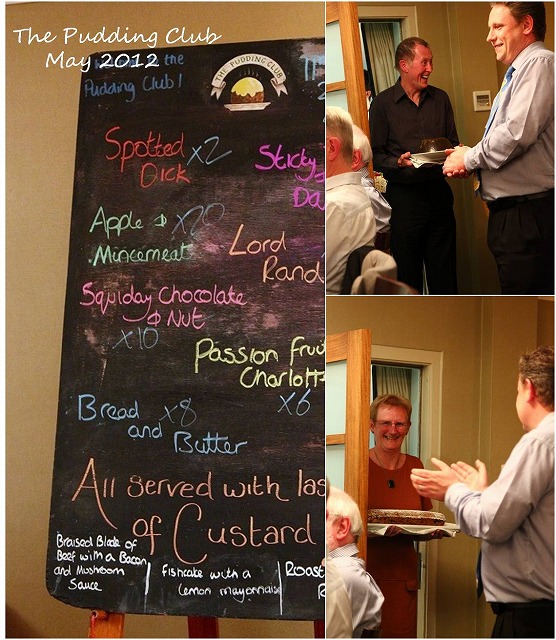 The Pudding Club
May 2012
the
Pudding Club!
THE PUDDING CLUB
Spotted x2
Dick
Sticky
Apple & x20
Mincemeat
Lord
Rand
Squidgy Chocolate
& Nut
x10
Passion Fruit
Charlotte
x6
Bread x8
and Butter
All served with las
of Custard
Braised Blade of
Beef with a Bacon
and Mushroom
Sauce
Fishcake with a
Lemon mayonnaise
Roast